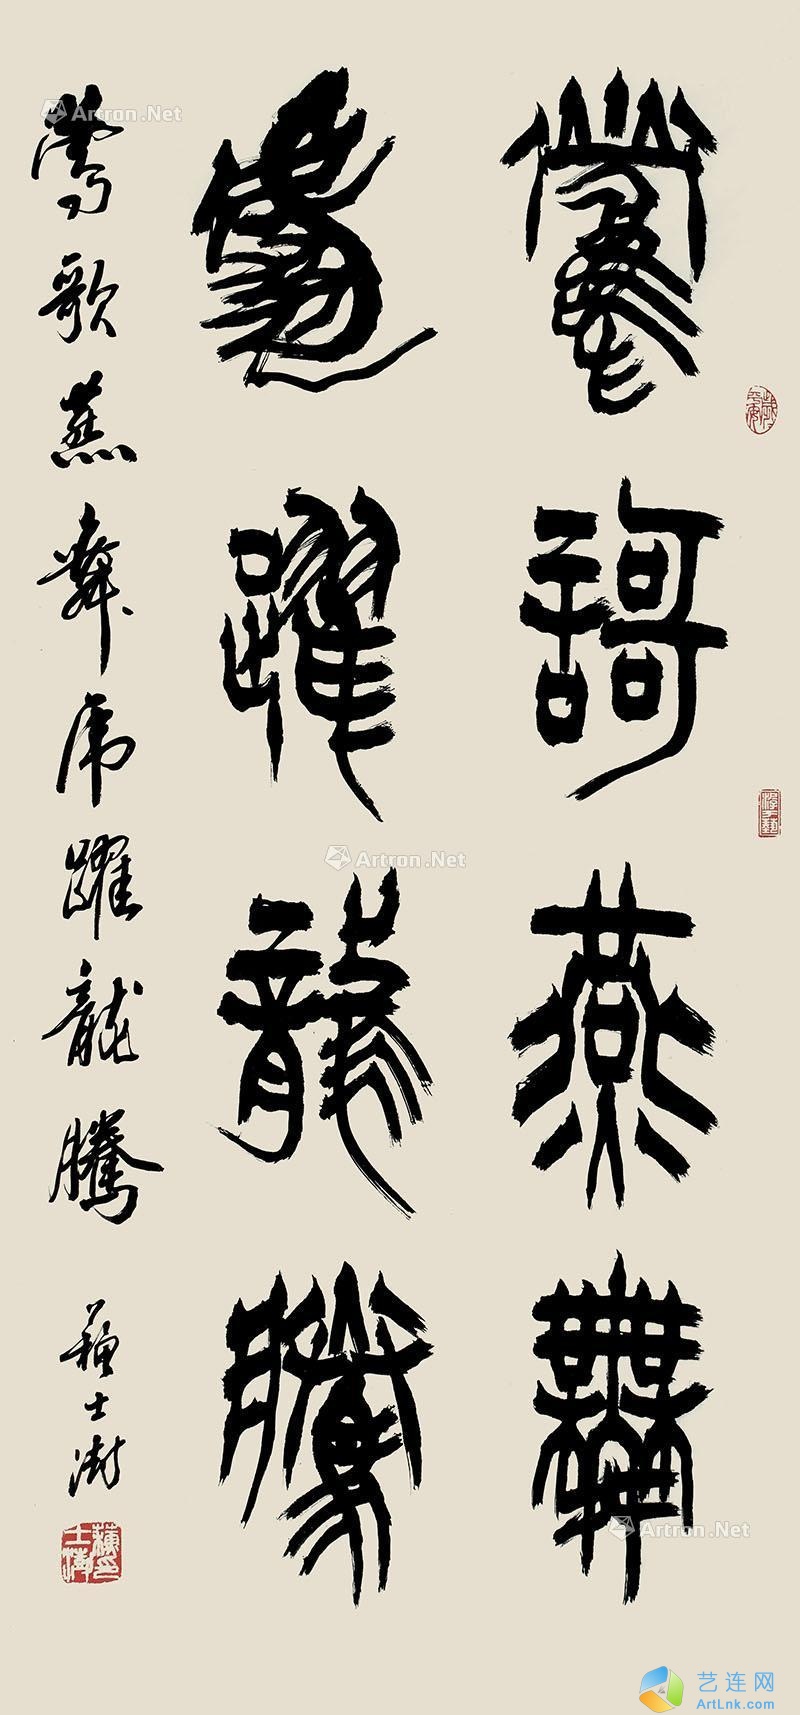 鶯謌燕舞
虎躍龍騰
鶯歌燕舞虎躍龍騰 蘇士澍
蘇士澍印
Artron.Net
Artron.Net
Artron.Net
艺连网
ArtLnk.com